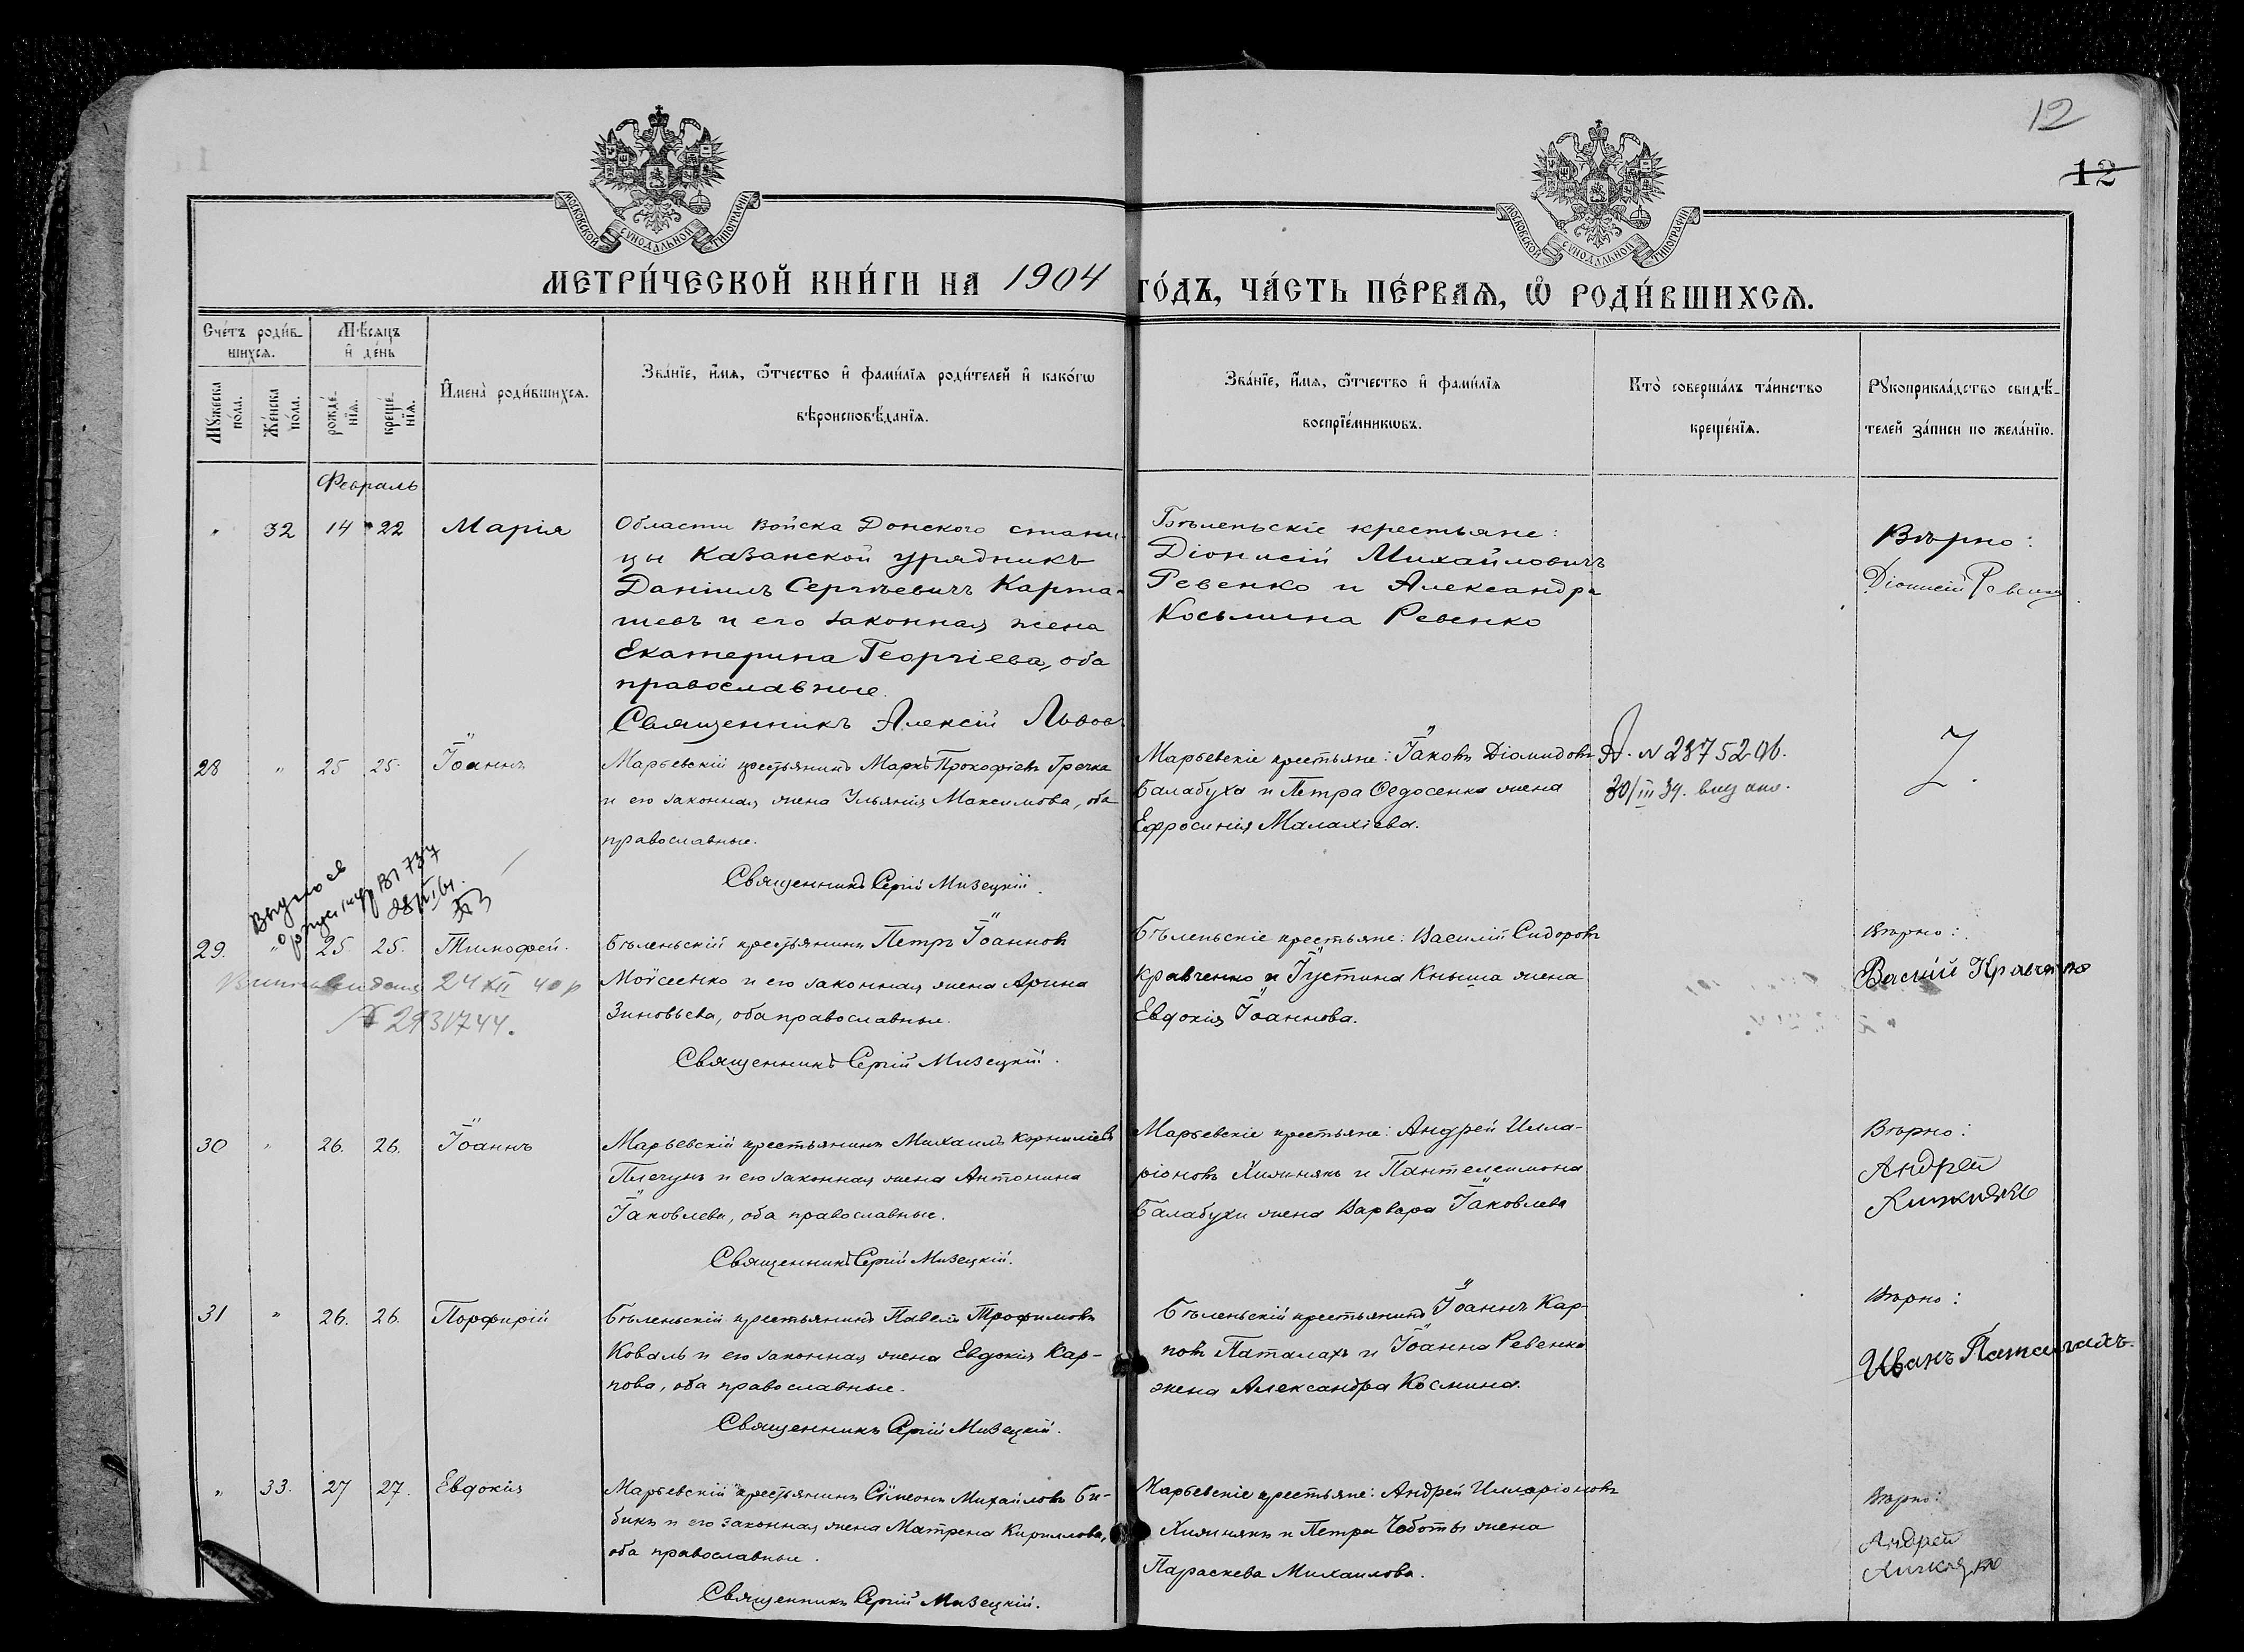 12
12
МОСКОВСКОЙ СУНОДАЛЬНОЙ ТИПОГРАФІИ
МОСКОВСКОЙ СУНОДАЛЬНОЙ ТИПОГРАФІИ
МЕТРИ́ЧЕСКОЙ КНИ́ГИ НА 1904 ГО́ДЪ, ЧА́СТЬ ПЕ́РВАѦ, Ѽ РОДИ́ВШИХСѦ.
Сче́тъ роди́в-
шихсѧ.
Мꙋ́жеска по́ла.
Же́нска по́ла.
Мѣ́сяцъ
и҆ де́нь
рожде́нїѧ.
креще́нїѧ.
И҆мена̀ роди́вшихсѧ.
Зва́нїе, и҆́мѧ, ѻ҆́тчество и҆ фами́лїѧ роди́телей и҆ како́гѡ
вѣроисповѣ́данїѧ.
Зва́нїе, и҆́мѧ, ѻ҆́тчество и҆ фами́лїѧ
воспрїе́мникѡвъ.
Кто̀ соверша́лъ та́инство
креще́нїѧ.
Рꙋкоприкла́дство свидѣ́-
телей за́писи по жела́нїю.
Февраль
" 32 14 22 Марія
Области Войска Донского стани-
цы Казанской урядникъ
Даніилъ Сергѣевичъ Карта-
шевъ и его законная жена
Екатерина Георгіева, оба
православные.
Священникъ Алексій Львов
Бѣленьскіе крестьяне:
Діонисій Михайловичъ
Ревенко и Александра
Косьмина Ревенко
Вѣрно:
Діонисій Ревенко
28 " 25 25. Іоаннъ
Марьевскій крестьянинъ Маркъ Прокофіевъ Гречка
и его законная жена Ульянія Максимова, оба
православные.
Священникъ Сергій Мизецкій.
Марьевскіе крестьяне: Іаковъ Діомидовъ
Балабуха и Петра Ѳедосенка жена
Ефросинія Малахіева.
N 2875206.
30/III 34.
Z.
29. " 25. 25. Тимофей.
24 XII 40 р
№ 2931744.
Бѣленьскій крестьянинъ Петръ Іоанновъ
Моѵсеенко и его законная жена Арина
Зиновьева, оба православные.
Священникъ Сергій Мизецкій.
Бѣленьскіе крестьяне: Василій Сидоровъ
Кравченко и Іустина Кныша жена
Евдокія Іоаннова.
Вѣрно:
Васілій Кравченко
30 " 26. 26. Іоаннъ
Марьевскій крестьянинъ Михаилъ Корниліевъ
Плечунъ и его законная жена Антонина
Іаковлева, оба православные.
Священникъ Сергій Мизецкій.
Марьевскіе крестьяне: Андрей Илла-
ріоновъ Хижнякъ и Пантелеимона
Балабухи жена Варвара Іаковлева
Вѣрно:
Андрей
31 " 26. 26. Порфирій
Бѣленьскій крестьянинъ Павелъ Трофимовъ
Коваль и его законная жена Евдокія Кар-
пова, оба православные.
Священникъ Сергій Мизецкій.
Бѣленьскій крестьянинъ Іоаннъ Кар-
повъ Паталахъ и Іоанна Ревенка
жена Александра Космина.
Вѣрно:
Иванъ Паталахъ.
" 33. 27 27. Евдокія
Марьевскій крестьянинъ Сѵмеонъ Михайловъ Би-
бикъ и его законная жена Матрена Кириллова,
оба православные.
Священникъ Сергій Мизецкій.
Марьевскіе крестьяне: Андрей Илларіоновъ
Хижнякъ и Петра Чоботы жена
Параскева Михаилова.
Вѣрно:
Андрей